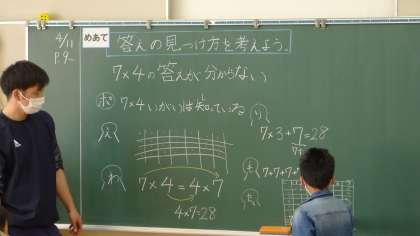 4/11
P.9
めあて
答えの見つけ方を考えよう。
7×4の答えが分からない
ポ 7×4いがいは知っている
え
わ
7×4=4×7
4×7=28
り
7×3+7=28
7×4
7+7+7+